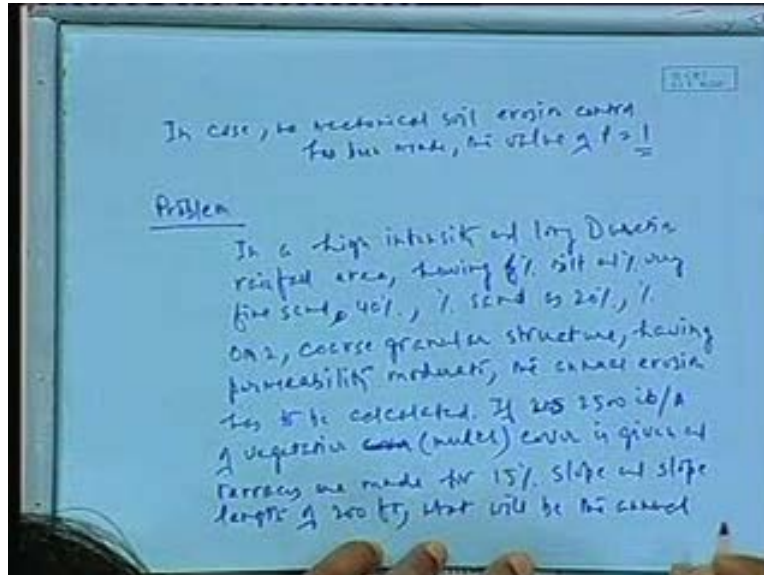 In case, no mechanical soil erosion control
has been made, the value of P = 1
Problem
In a high intensity and long Duration
rainfall area, having % silt and % very
fine sand, 40%, % sand as 20%, %
OM 2, coarse granular structure, having
permeability moderate, the annual erosion
has to be calculated. If 2500 lb/A
of vegetative (mulch) cover is given and
terraces are made for 15% slope and slope
length of 200 ft, what will be the annual